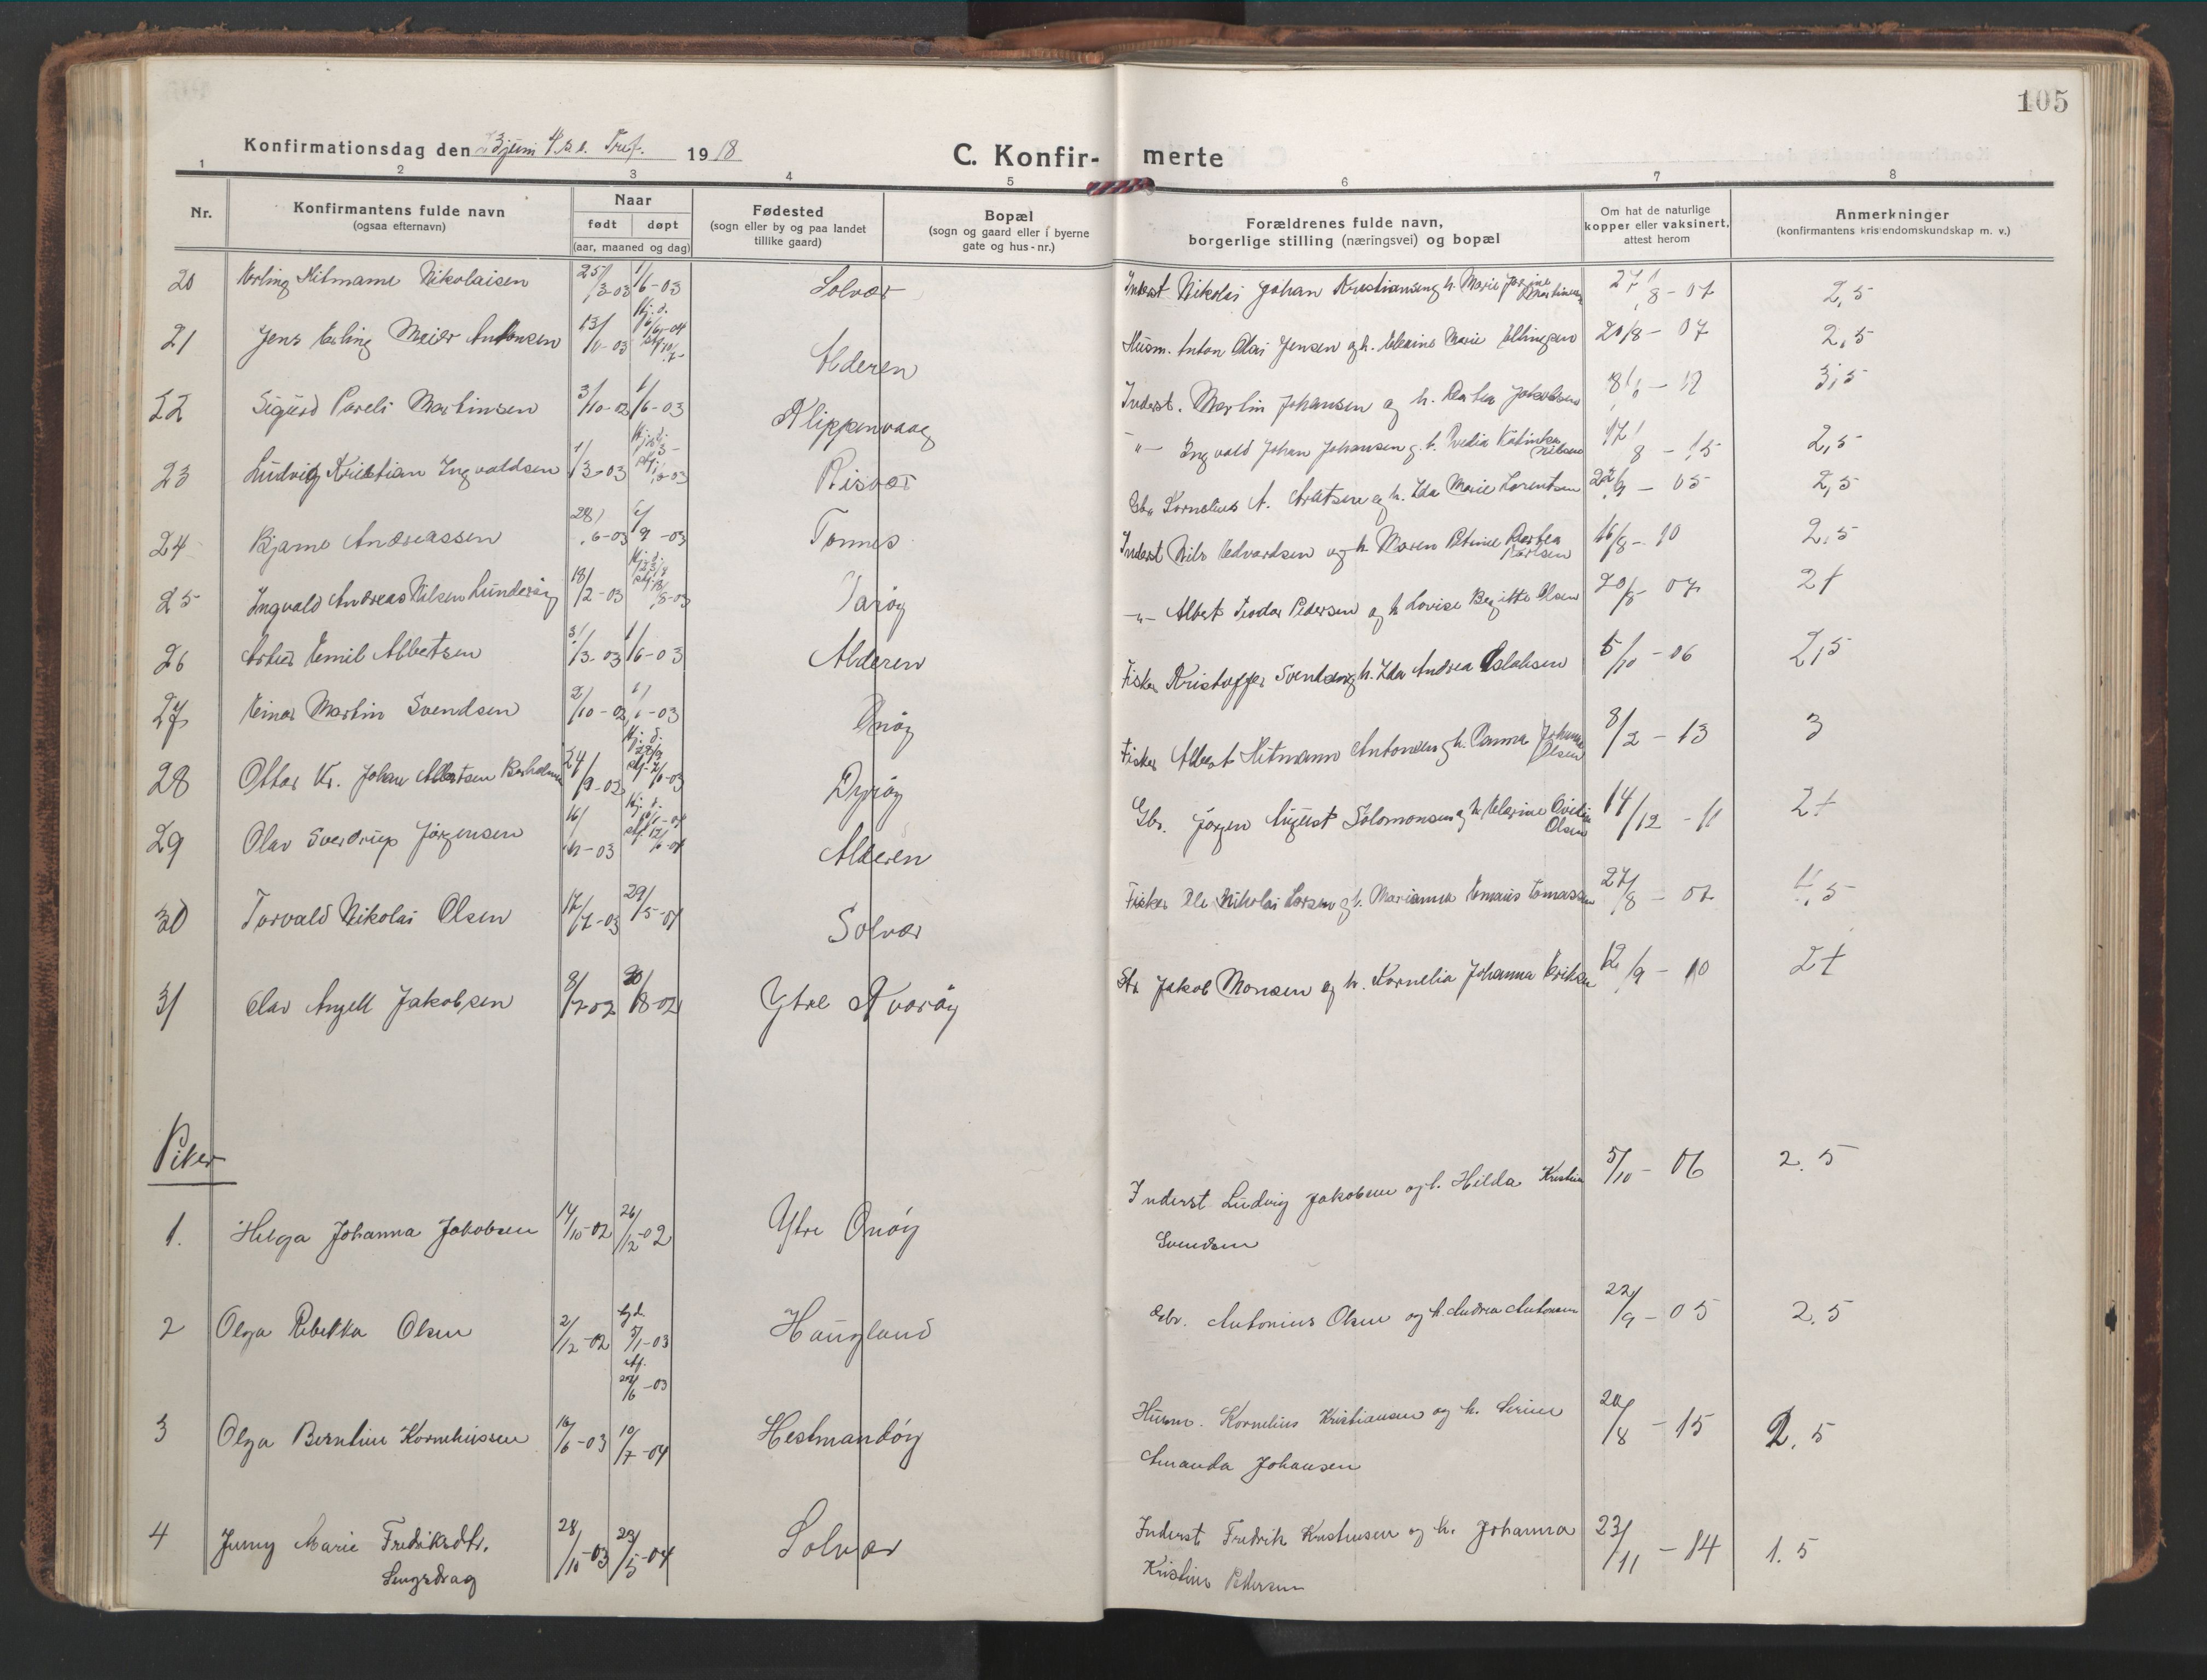 105
Konfirmationsdag den 23 juni 4 s. e. Tref. 1918
C. Konfir- merte
1 2 3 4 5 6 7 8
Nr.
Konfirmantens fulde navn
(ogsaa efternavn)
Naar
født døpt
(aar, maaned og dag)
Fødested
(sogn eller by og paa landet
tillike gaard)
Bopæl
(sogn og gaard eller i byerne
gate og hus-nr.)
Forældrenes fulde navn,
borgerlige stilling (næringsvei) og bopæl
Om hat de naturlige
kopper eller vaksinert,
attest herom
Anmerkninger
(konfirmantens kristendomskundskap m. v.)
20 Erling Hitmann Nikolaisen 25/3-03 1/6-03 Solvær Inderst Nikolai Johan Kristiansen og h. Marie Martinsen 27/8-07 2,5
21 Jens Erling Meier Antonsen 13/11-03 Hj. d. Alderen Husm. Anton Olai Jensen og h. Elerine Marie Ellingsen 20/8-07 2,5
22 Sigurd Pareli Martinsen 3/10-02 1/6-03 Klippenvaag Inderst. Martin Johansen og h. Dortea Jakobsen 3,5
23 Ludvig Kristian Ingvaldsen 1/3-03 Hj. d. Risvær -"- Ingvald Johan Johansen og h. Katinka Nilsen 17/8-15 2,5
24 Bjarne Andreassen 28/6-03 6/9-03 Tonnes Gbr. Kornelius A. h. Ida Marie Lorentsen 22/9-05 2,5
25 Ingvald Andreas Nilsen Lundersøy 18/2-03 Hj. d. Inderst Nils Edvardsen og h. Maren Petrine Dortea Karlsen 16/8-10 2,5
26 Artur Emil Albertsen 31/3-03 1/6-03 Alderen -"- Albert Teodor Pedersen og h. Lovise Bergitte Olsen 20/8-07 2+
27 Einar Martin Svendsen 2/10-02 1/6-03 Onøy Fisker Kristoffer Svendsen og h. Ida Andrea 5/10-06 2,5
28 Ottar Kr. Johan Albertsen 24/9-02 Hj. d. Dyrøy Fisker Albert Hitmann Antonsen og h. Johanna Olsen 8/2-13 3
29 Olav Sverdrup Jørgensen 16/11-03 Hj. d. Alderen Gbr. Jørgen August Solomonsen og h. Elerine Olsen 14/12-11 2+
30 Torvald Nikolai Olsen 17/7-03 29/5-04 Solvær Fisker Ole Nikolai Larsen og h. Marianna Emaus Tomassen 27/8-07 4,5
31 Olav Angell Jakobsen 8/7-02 20/8-02 Ytre Kvarøy Str. Jakob Monsen og h. Kornelia Johanna Eriksen 12/9-10 2+
Piker
1. Helga Johanna Jakobsen 14/10-02 26/12-02 Ytre Onøy Inderst Ludvig Jakobsen og h. Hilda Kristine 5/10-06 2.5
Svendsen
2 Olga Rebekka Olsen 2/12-02 hj. d. 5/1-03 Haugland Gbr. Antonius Olsen og h. Andrea Antonsen 22/9-05 2.5
3 Olga Berntine Korneliussen 16/6-03 10/7-04 Hestmandøy Husm. Kornelius Kristiansen og h. Serine 20/8-15 2.5
Amanda Johansen
4 Jenny Marie Fredriksdtr. 28/10-03 23/5-04 Solvær Inderst Fredrik Kristensen og h. Johanna 23/11-14 1.5
Lengsdrag
Kristine Pedersen